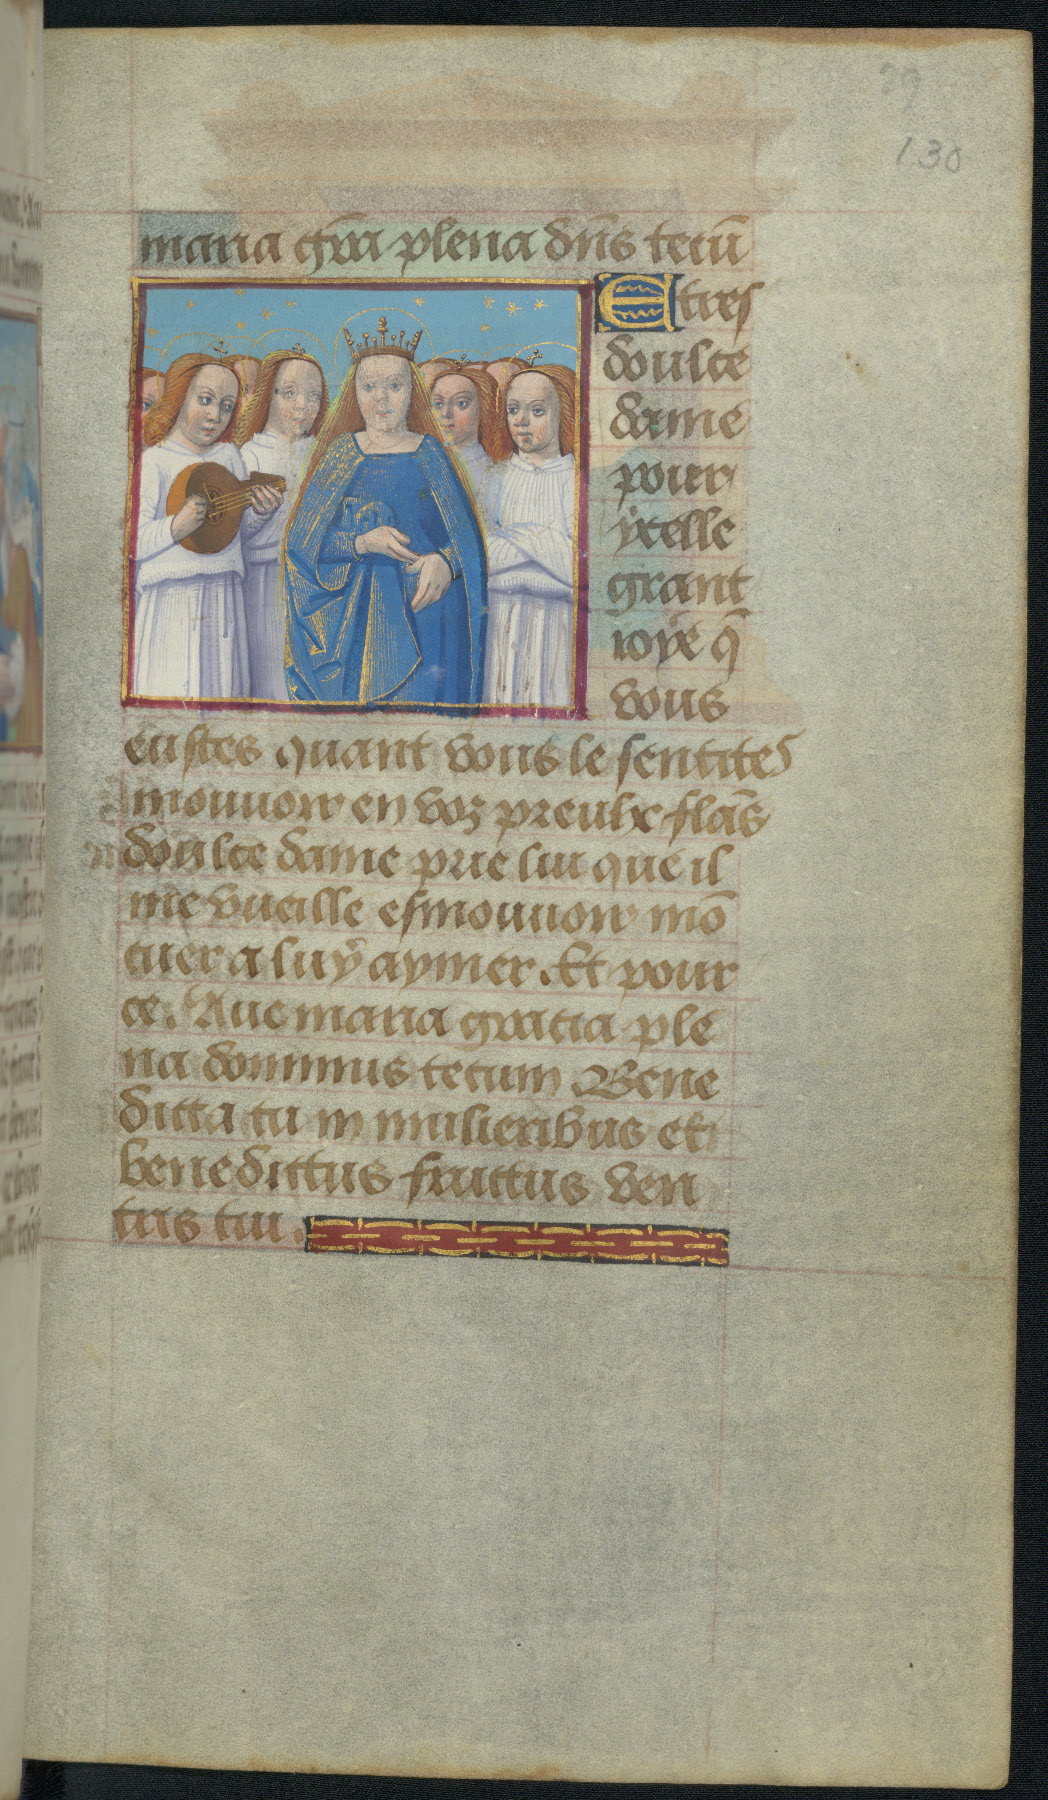 29
130
maria gr̃a plena dñs tecũ
E tres
doulce
dame
pour
ycelle
grant
ioye q̃
vous
eustes quant vous le sentites
mouuoir en voz preulx flãs
doulce dame prie lui que il
me vueille esmouuoir mõ
cuer a luy aymer. Et pour
ce. Aue maria gracia ple
na dominus tecum Bene
dicta tu in mulieribus et
benedictus fructus ven
tris tui.